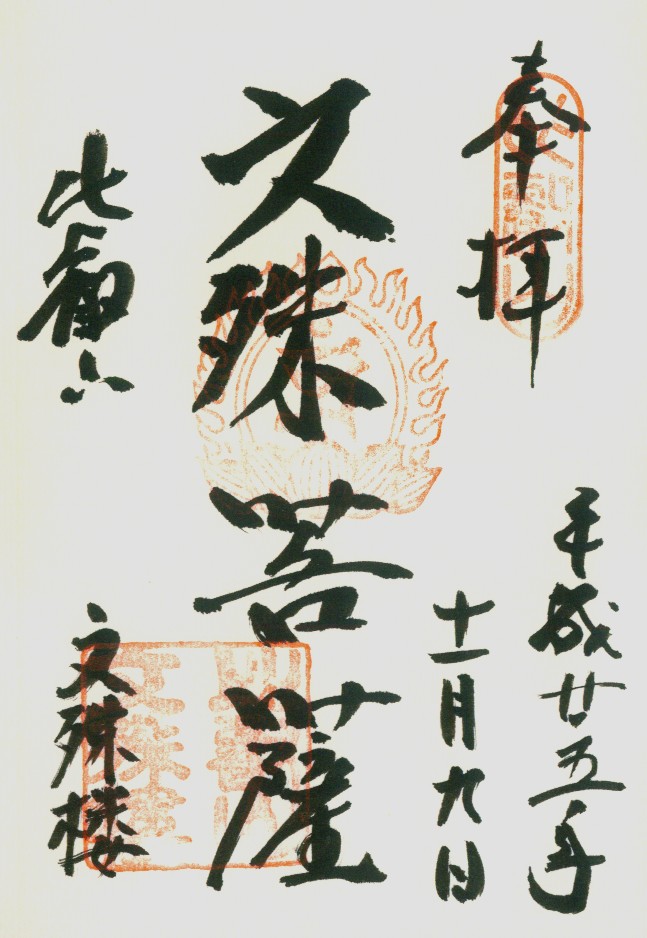 奉拝
平成廿五年
十一月九日
文殊菩薩
比叡山
文殊楼